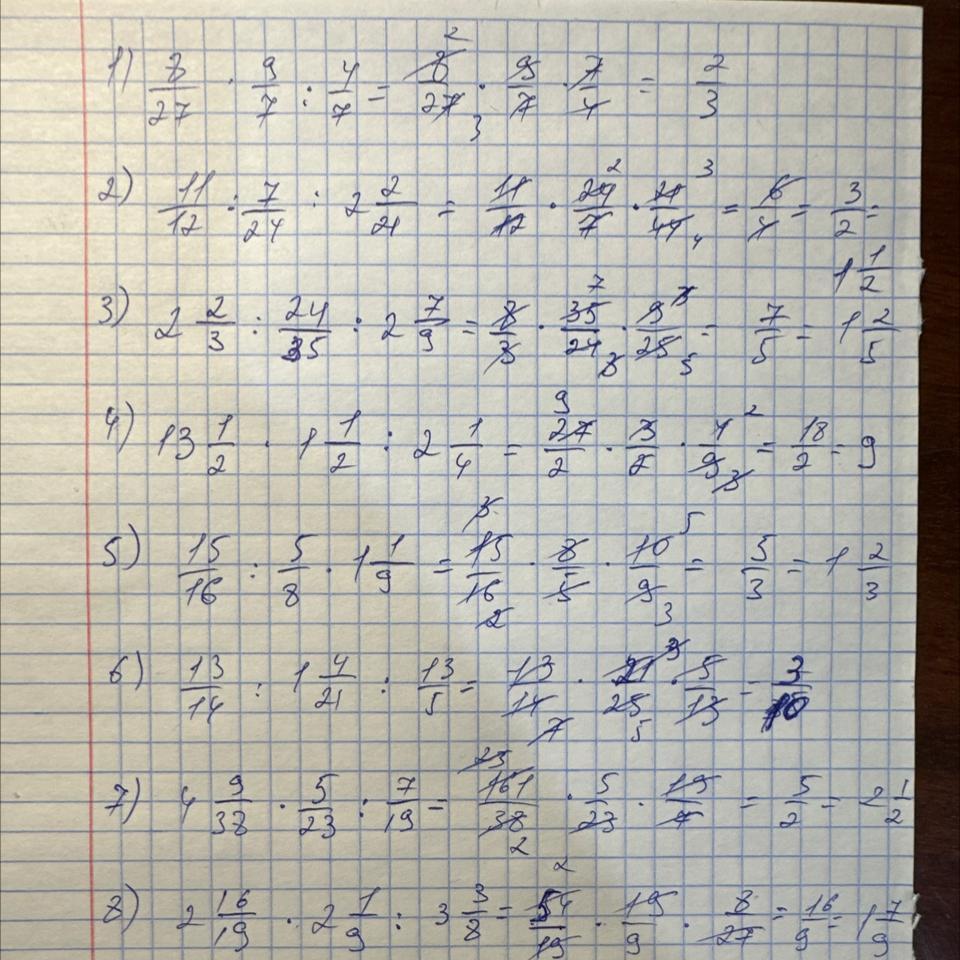 1) 8/27 · 9/7 : 4/7 = 8/27 · 9/7 · 7/4 = 2/3
2) 11/12 : 7/24 : 2 2/21 = 11/12 · 24/7 · 21/44 = 6/4 = 3/2 =
1 1/2
3) 2 2/3 : 24/35 : 2 7/9 = 8/3 · 35/24 · 9/25 = 7/5 = 1 2/5
4) 13 1/2 · 1 1/2 : 2 1/4 = 27/2 · 3/2 · 4/9 = 18/2 = 9
5) 15/16 : 5/8 · 1 1/9 = 15/16 · 8/5 · 10/9 = 5/3 = 1 2/3
6) 13/14 : 1 4/21 : 13/5 = 13/14 · 21/25 · 5/13 = 3/10
7) 4 9/38 · 5/23 : 7/19 = 161/38 · 5/23 · 19/7 = 5/2 = 2 1/2
8) 2 16/19 · 2 1/9 : 3 3/8 = 54/19 · 19/9 · 8/27 = 16/9 = 1 7/9